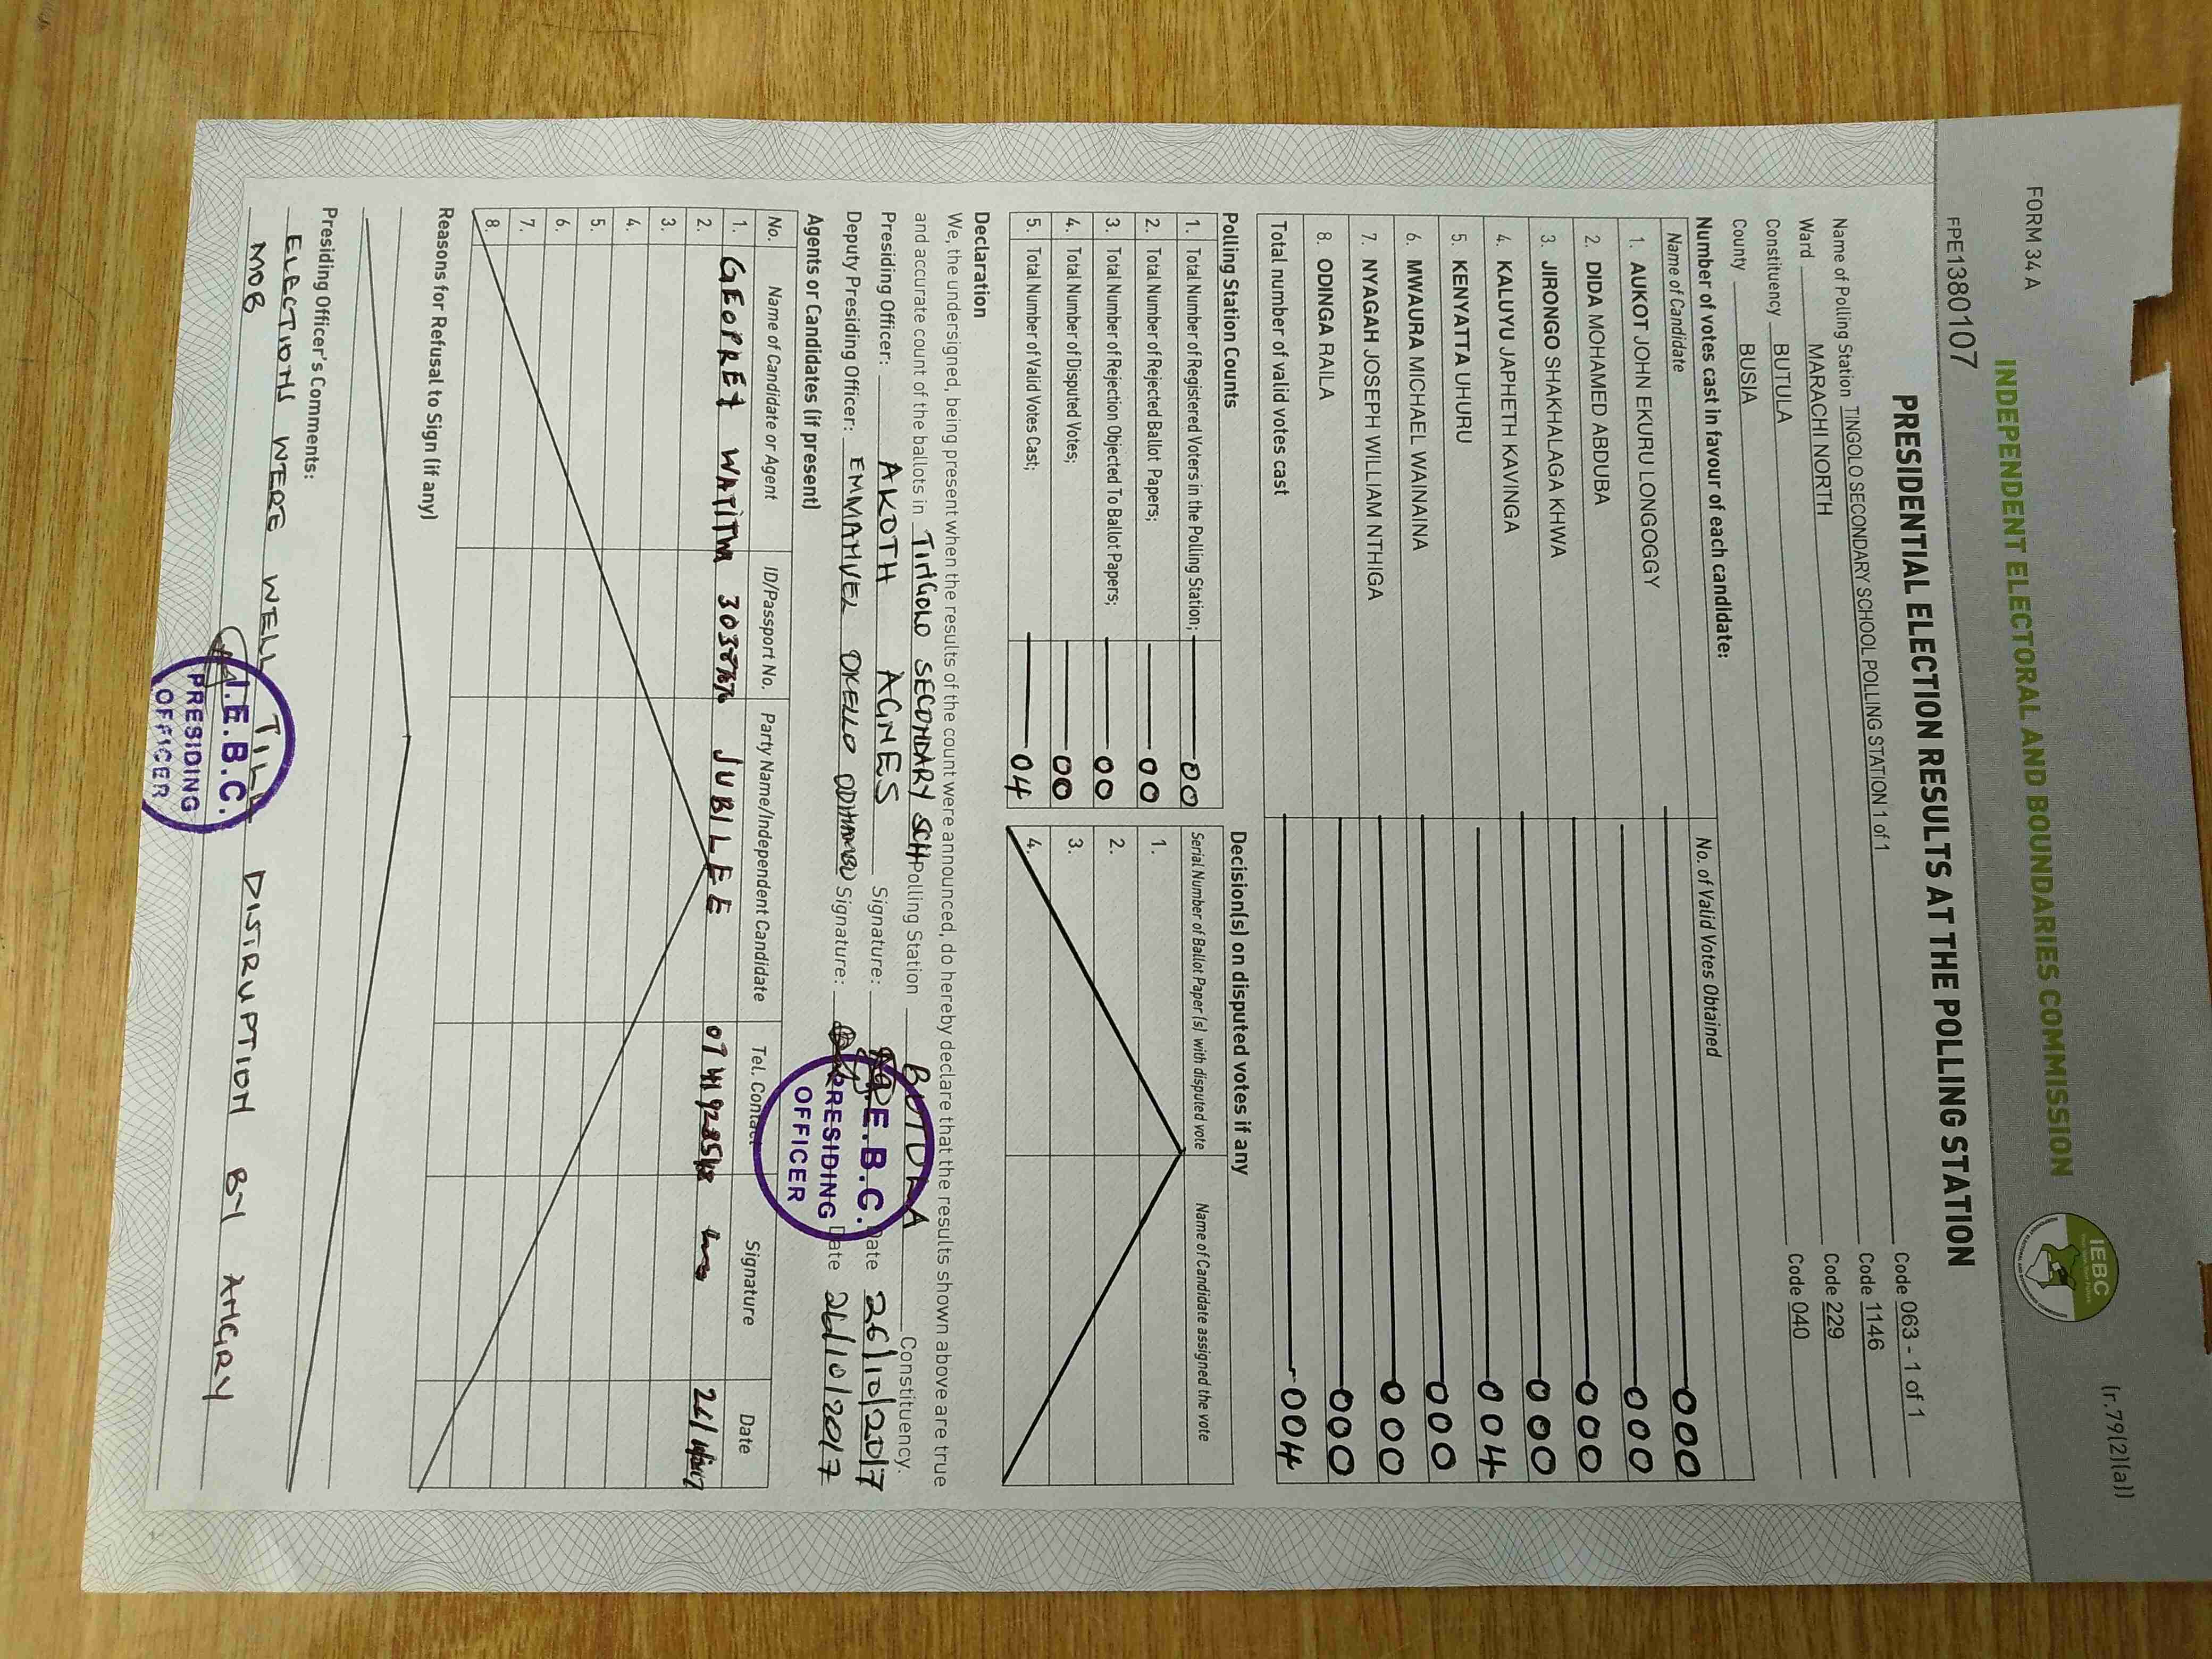 FORM 34 A
(r.79(2)(a))
INDEPENDENT ELECTORAL AND BOUNDARIES COMMISSION
IEBC
FPE1380107
PRESIDENTIAL ELECTION RESULTS AT THE POLLING STATION
Name of Polling Station TINGOLO SECONDARY SCHOOL POLLING STATION 1 of 1 Code 063 - 1 of 1
Ward MARACHI NORTH Code 1146
Constituency BUTULA Code 229
County BUSIA Code 040
Number of votes cast in favour of each candidate:
Name of Candidate No. of Valid Votes Obtained
1. AUKOT JOHN EKURU LONGOGGY 000
2. DIDA MOHAMED ABDUBA 000
3. JIRONGO SHAKHALAGA KHWA 000
4. KALUYU JAPHETH KAVINGA 000
5. KENYATTA UHURU 004
6. MWAURA MICHAEL WAINAINA 000
7. NYAGAH JOSEPH WILLIAM NTHIGA 000
8. ODINGA RAILA 000
Total number of valid votes cast 004
Polling Station Counts
1. Total Number of Registered Voters in the Polling Station; 00
2. Total Number of Rejected Ballot Papers; 00
3. Total Number of Rejection Objected To Ballot Papers; 00
4. Total Number of Disputed Votes; 00
5. Total Number of Valid Votes Cast; 04
Decision(s) on disputed votes if any
Serial Number of Ballot Paper (s) with disputed vote Name of Candidate assigned the vote
1.
2.
3.
4.
Declaration
We, the undersigned, being present when the results of the count were announced, do hereby declare that the results shown above are true
and accurate count of the ballots in TINGOLO SECONDARY SCH Polling Station BUTULA Constituency.
Presiding Officer: AKOTH AGNES Signature: Date 26/10/2017
Deputy Presiding Officer: EMMANUEL OKELLO ODHIAMBO Signature: Date 26/10/2017
I.E.B.C.
PRESIDING
OFFICER
Agents or Candidates (if present)
No. Name of Candidate or Agent ID/Passport No. Party Name/Independent Candidate Tel. Contact Signature Date
1. GEOFREY WATITWA JUBILEE
2.
3.
4.
5.
6.
7.
8.
Reasons for Refusal to Sign (if any)
Presiding Officer's Comments:
ELECTIONS WERE WELL TILL DISTRUPTION BY ANGRY
MOB
I.E.B.C.
PRESIDING
OFFICER